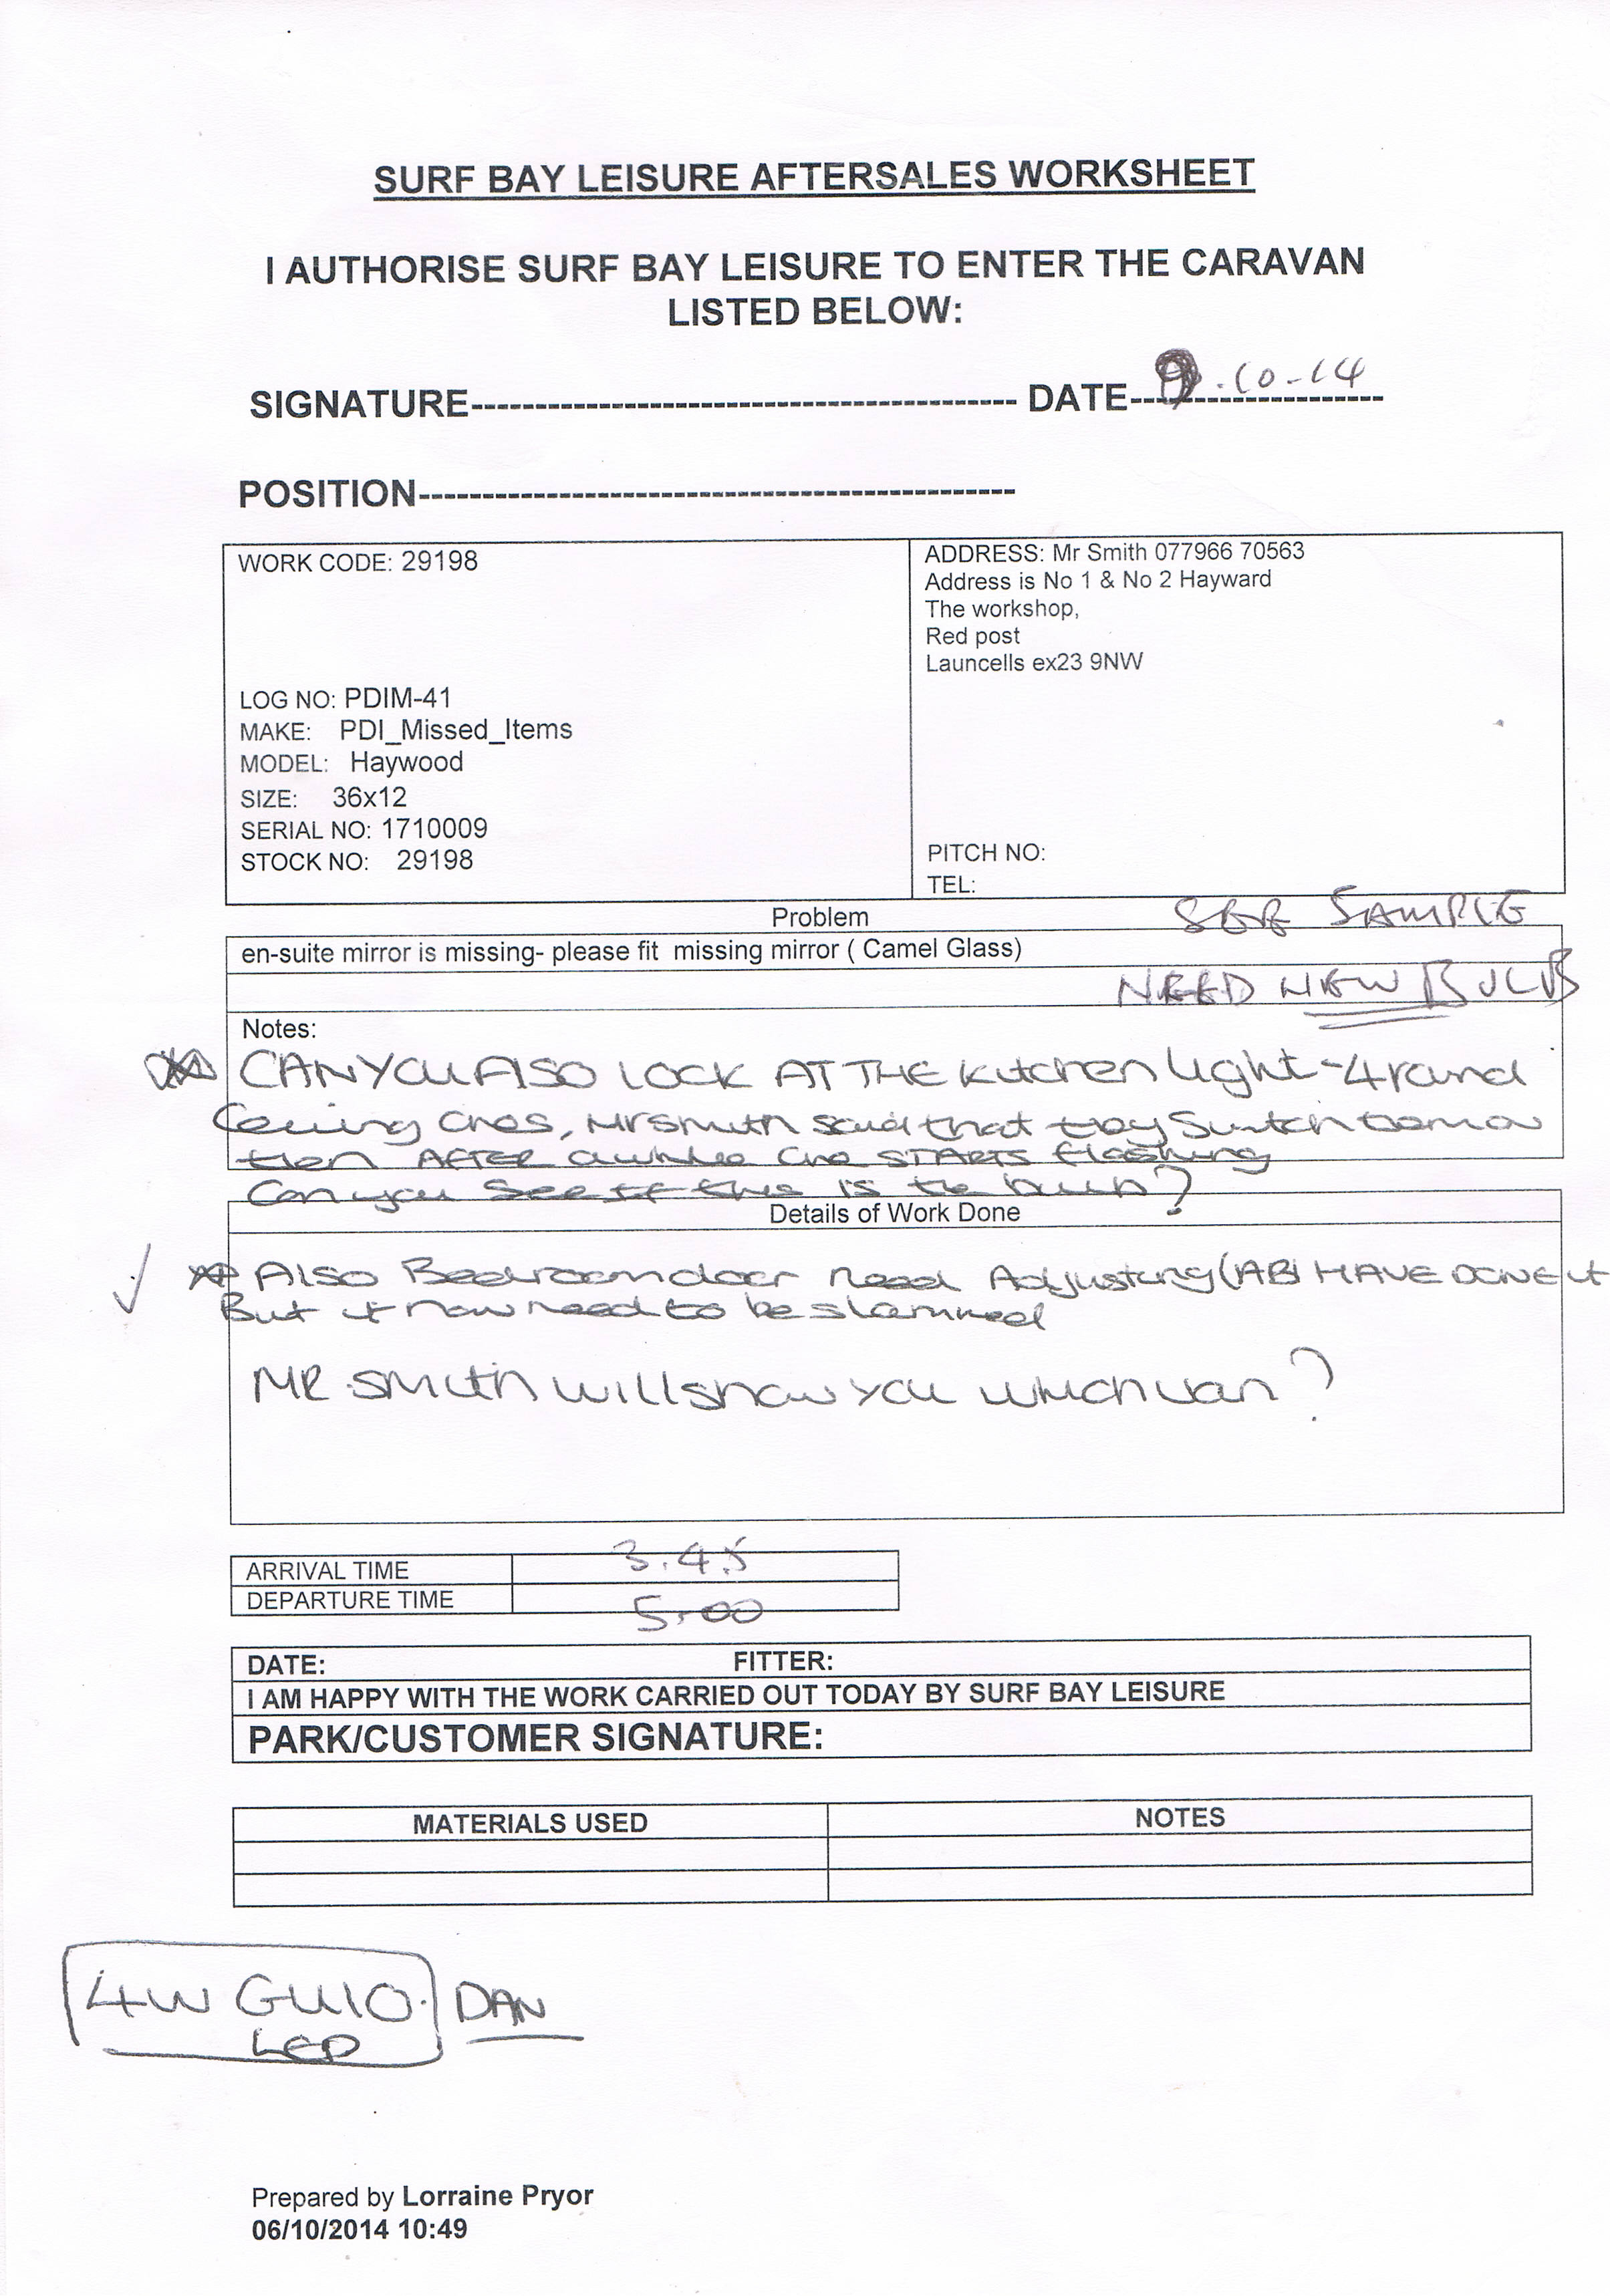 SURF BAY LEISURE AFTERSALES WORKSHEET
I AUTHORISE SURF BAY LEISURE TO ENTER THE CARAVAN
LISTED BELOW:
SIGNATURE------------------------------------------- DATE--------------------
9.10-14
POSITION-----------------------------------------------
WORK CODE: 29198
LOG NO: PDIM-41
MAKE: PDI_Missed_Items
MODEL: Haywood
SIZE: 36x12
SERIAL NO: 1710009
STOCK NO: 29198
ADDRESS: Mr Smith 077966 70563
Address is No 1 & No 2 Hayward
The workshop,
Red post
Launcells ex23 9NW
PITCH NO:
TEL:
Problem
SEE SAMPLE
en-suite mirror is missing- please fit missing mirror ( Camel Glass)
NEED NEW BULB
Notes:
CAN YOU ALSO LOOK AT THE Kitchen light - 4 round
Ceiling ones, Mr Smith said that they Switch them on
then AFTER awhile one STARTS flashing
Can you see if this is the bulb?
Details of Work Done
Also Bedroom door need Adjusting (ABI HAVE DONE it
But it now need to be slammed
MR SMith will show you which van?
ARRIVAL TIME 3.45
DEPARTURE TIME 5.00
DATE: FITTER:
I AM HAPPY WITH THE WORK CARRIED OUT TODAY BY SURF BAY LEISURE
PARK/CUSTOMER SIGNATURE:
MATERIALS USED NOTES
4W GU10. DAN
LED
Prepared by Lorraine Pryor
06/10/2014 10:49